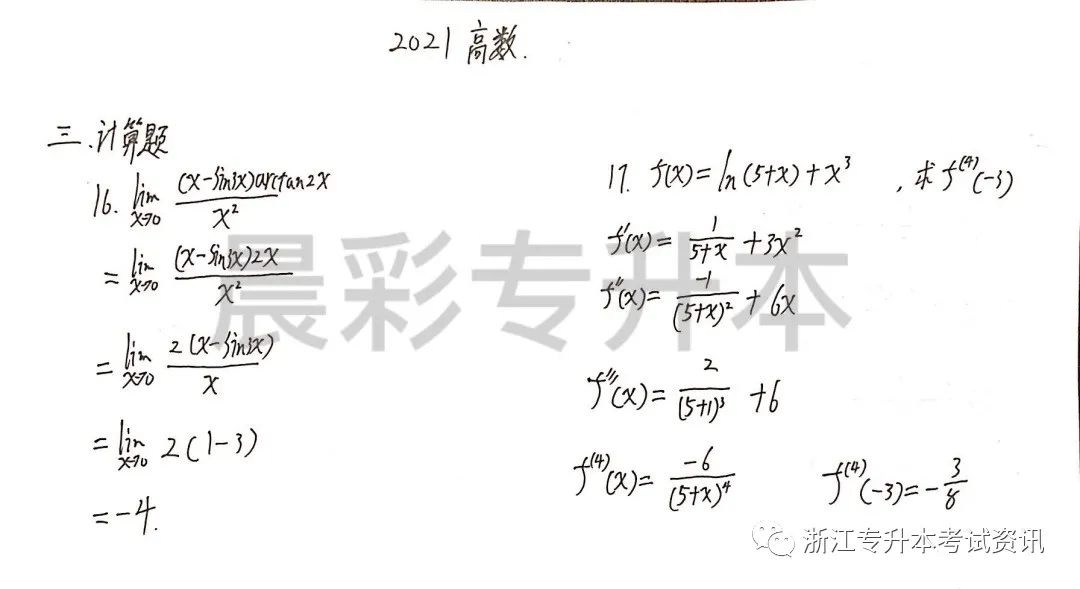 2021高数.
三.计算题
16. lim x→0 (x-sin3x)arctan2x / x²
= lim x→0 (x-sin3x)2x / x²
= lim x→0 2(x-sin3x) / x
= lim x→0 2(1-3)
= -4.
17. f(x)=ln(5+x)+x³ ,求f⁽⁴⁾(-3)
f'(x)= 1/(5+x) +3x²
f''(x)= -1/(5+x)² + 6x
f'''(x)= 2/(5+1)³ +6
f⁽⁴⁾(x)= -6/(5+x)⁴ f⁽⁴⁾(-3)=-3/8
晨彩专升本
浙江专升本考试资讯